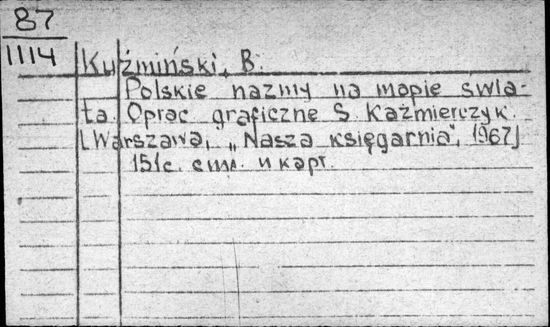 87
1114
Kuźmiński, B.
Polskie nazwy na mapie świa-
ta. Oprac. graficzne S. Kaźmierczyk.
[Warszawa, „Nasza księgarnia", 1967]
151с. с илл. и карт.